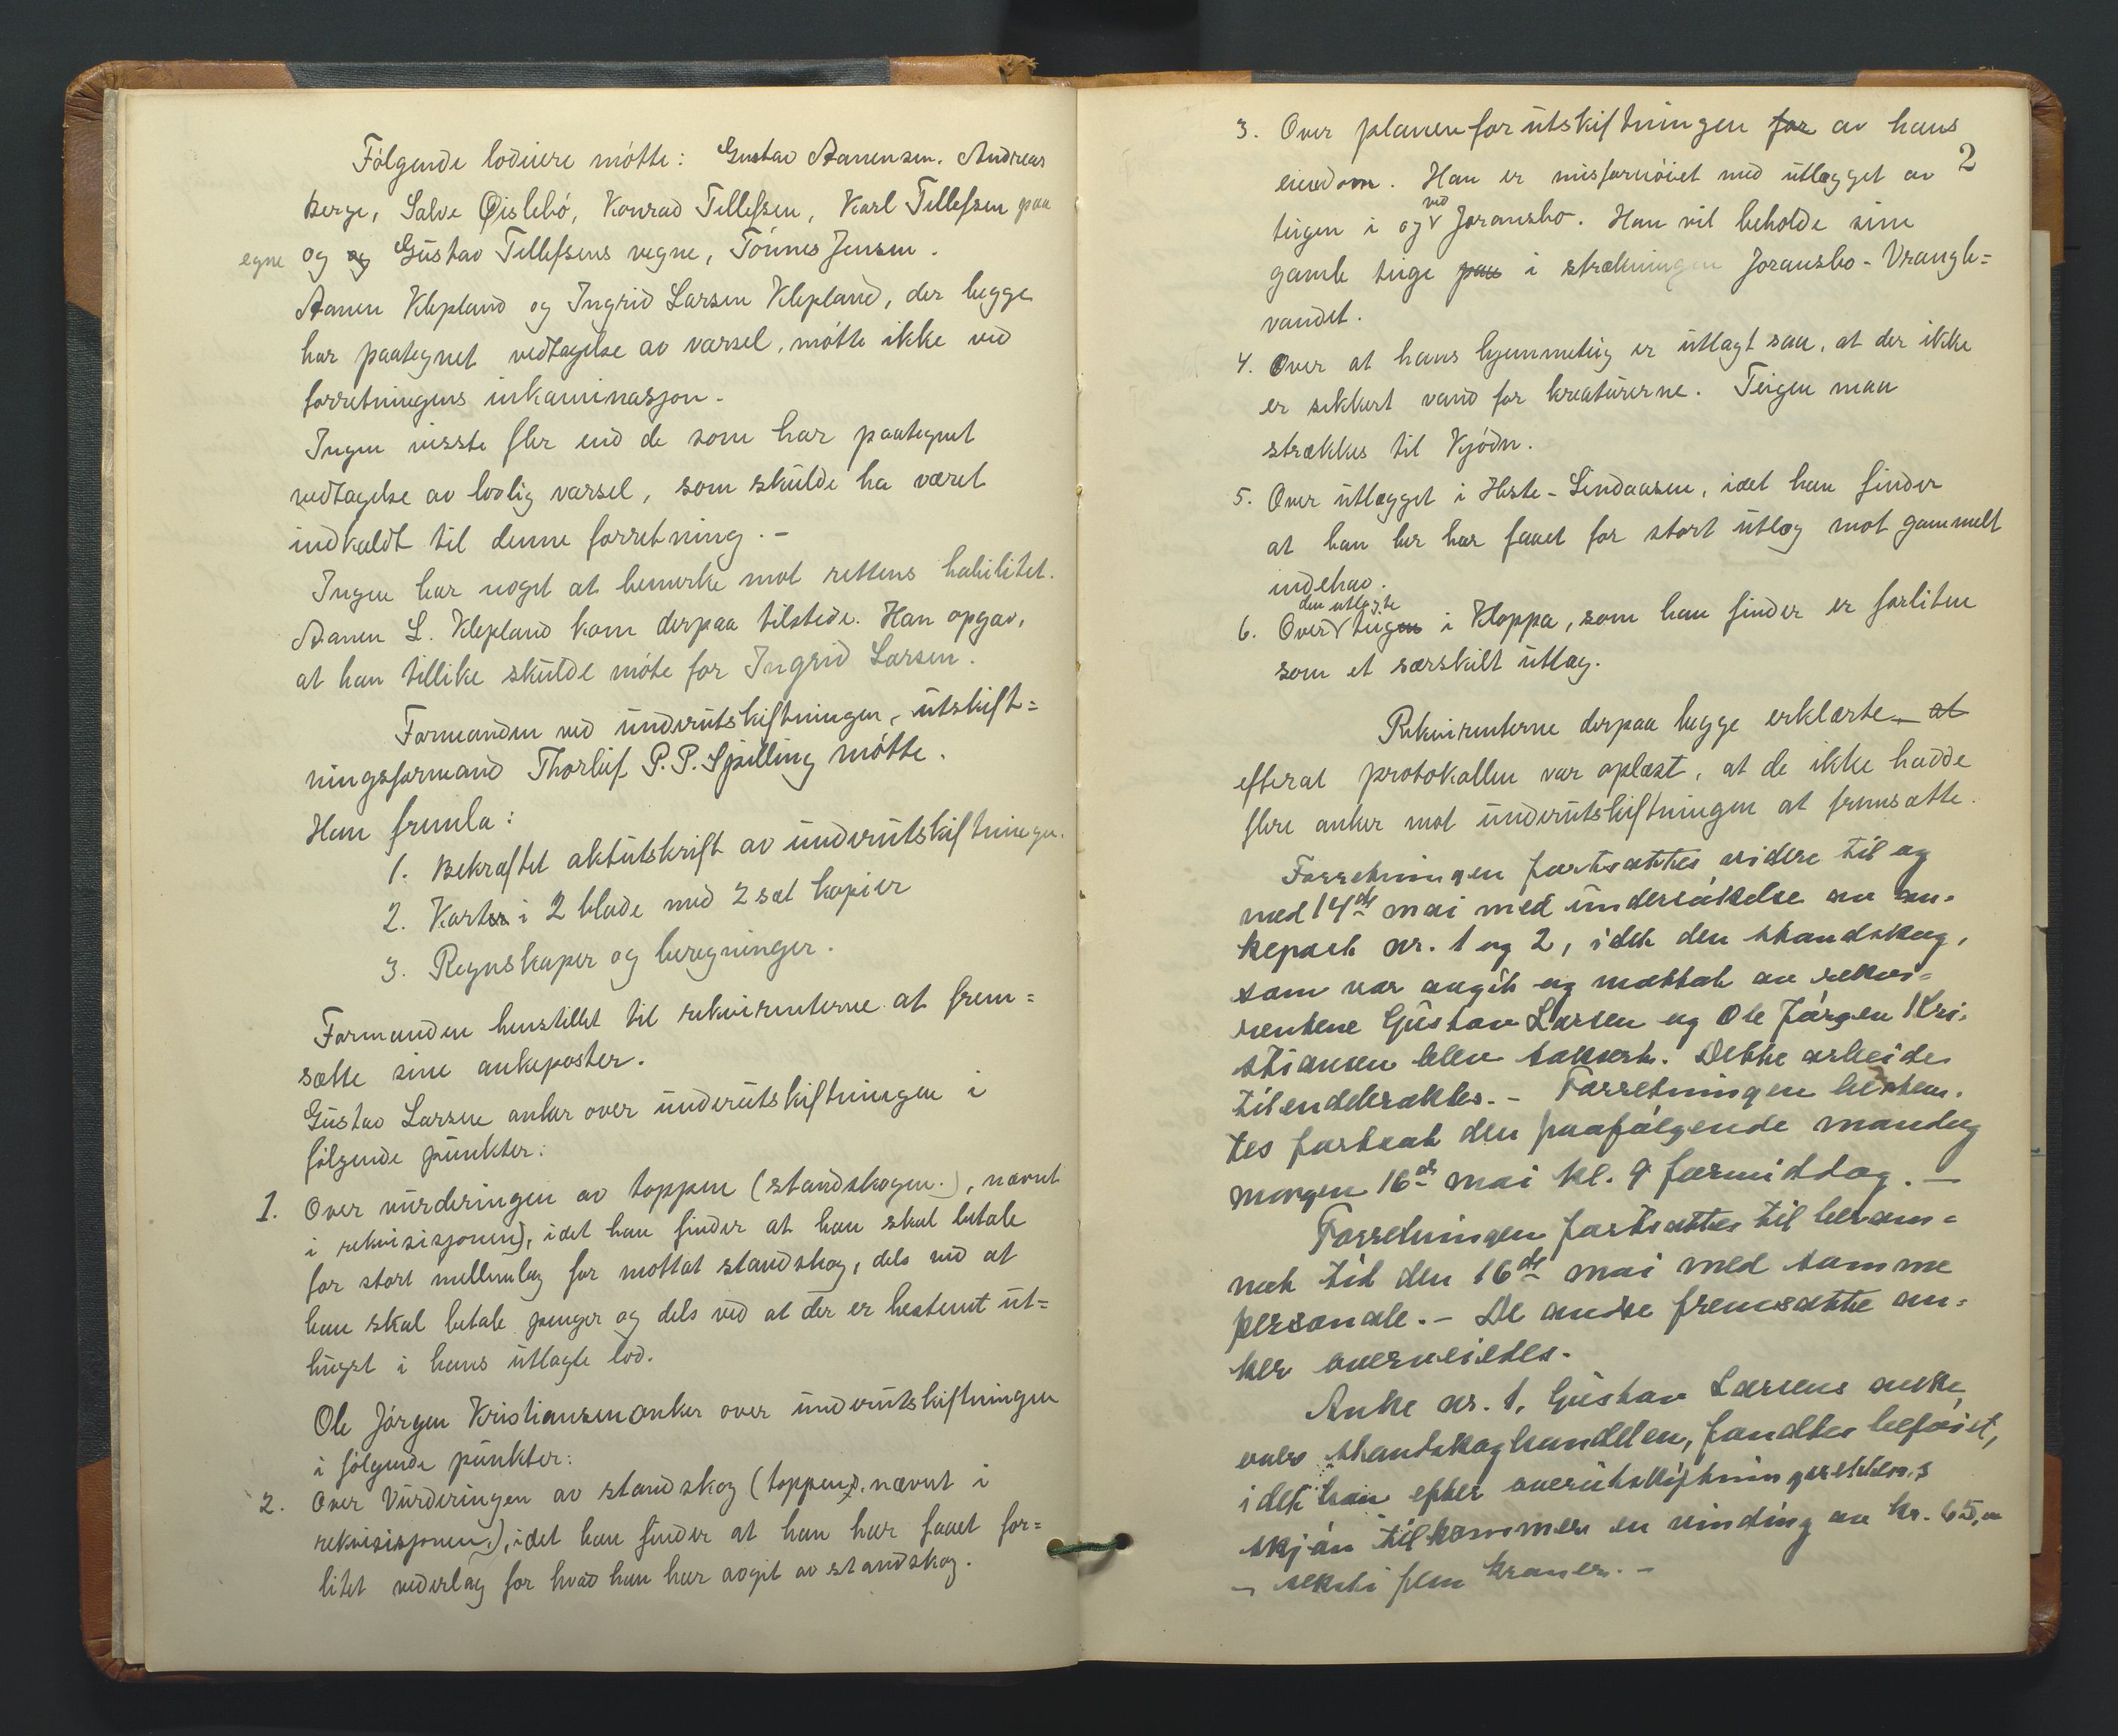 Følgende lodeiere møtte: Gustav Aanensen. Andreas
Berge, Salve Øislebø, Konrad Tellefsen, Karl Tellefsen paa
egne og og Gustav Tellefsens vegne, Tønnes Jensen.
Aanen Klepland og Ingrid Larsen Klepland, der begge
har paategnet vedtagelse av varsel, møtte ikke ved
forretningens inkaminasjon.
Ingen visste fler end de som har paategnet
vedtagelse av lovlig varsel, som skulde ha været
indkaldt til denne forretning.-
Ingen har noget at bemerke mot rettens habilitet.
Aanen L. Klepland kom derpaa tilstede. Han opgav,
at han tillike skulde møte for Ingrid Larsen.
Formanden ved underutskiftningen, utskift=
ningsformand Thorleif P. P. Spilling møtte.
Han fremla:
1. Bekræftet aktutskrift av underutskiftningen.
2. Karter i 2 blade med 2 sæt kopier
3. Regnskaper og beregninger.
Formanden henstillet til rekvirenterne at frem=
sætte sine ankeposter.
Gustav Larsen anker over underutskiftningen i
følgende punkter:
1. Over vurderingen av toppen (standskogen.), nævnt
i rekvisisjonen), idet han finder at han skal betale
for stort mellemlag for mottat standskog, dels ved at
han skal betale penger og dels ved at der er bestemt ut=
hugst i hans utlagte lod.
Ole Jørgen Kristiansen anker over underutskiftningen
i følgende punkter:
2. Over Vurderingen av standskog (toppen), nævnt i
rekvisisjonen), idet han finder at han har faaet for=
litet vederlag for hvad han har avgit av standskog.
3. Over planen for utskiftningen for av hans
2
eiendom. Han er misfornøiet med utlægget av
teigen i og ved Joransbo. Han vil beholde sine
gamle teige paa i strækningen Joransbo - Vrangle=
vandet.
4. Over at hans hjemmeteig er utlagt saa, at der ikke
er sikkert vand for kreaturerne. Teigen maa
strækkes til Kjødn.
5. Over utlægget i Heste - Lindaasen, idet han finder
at han her har faaet for stort utlæg mot gammelt
indehav.
den utlagte
6. Over teigen i Kloppa, som han finder er forliten
som et særskilt utlæg.
Rekvirenterne derpaa begge erklærte, at
efterat protokollen var oplæst, at de ikke hadde
flere anker mot underutskiftningen at fremsætte.
Forretningen fortsættes videre til og
med 14de mai med undersøkelse av an-
kepost nr. 1 og 2, idet den standskog,
som var avgit og mottat av rekvi=
rentene Gustav Larsen og Ole Jørgen Kri-
stiansen blev taksert. Dette arbeide
tilendebraktes. - Forretningen bestem-
tes fortsat den paafølgende mandag
morgen 16de mai kl. 9 formiddag. -
Forretningen fortsattes til beram=
met tid den 16de mai med samme
personale. - De andre fremsatte an=
ker overveiedes.
Anke nr. 1. Gustav Larsens anke
over standskoghandelen, fandtes beføiet,
idet han efter overutskiftningsrettens
skjøn tilkommer en vinding av kr. 65,00
- seksti fem kroner. -